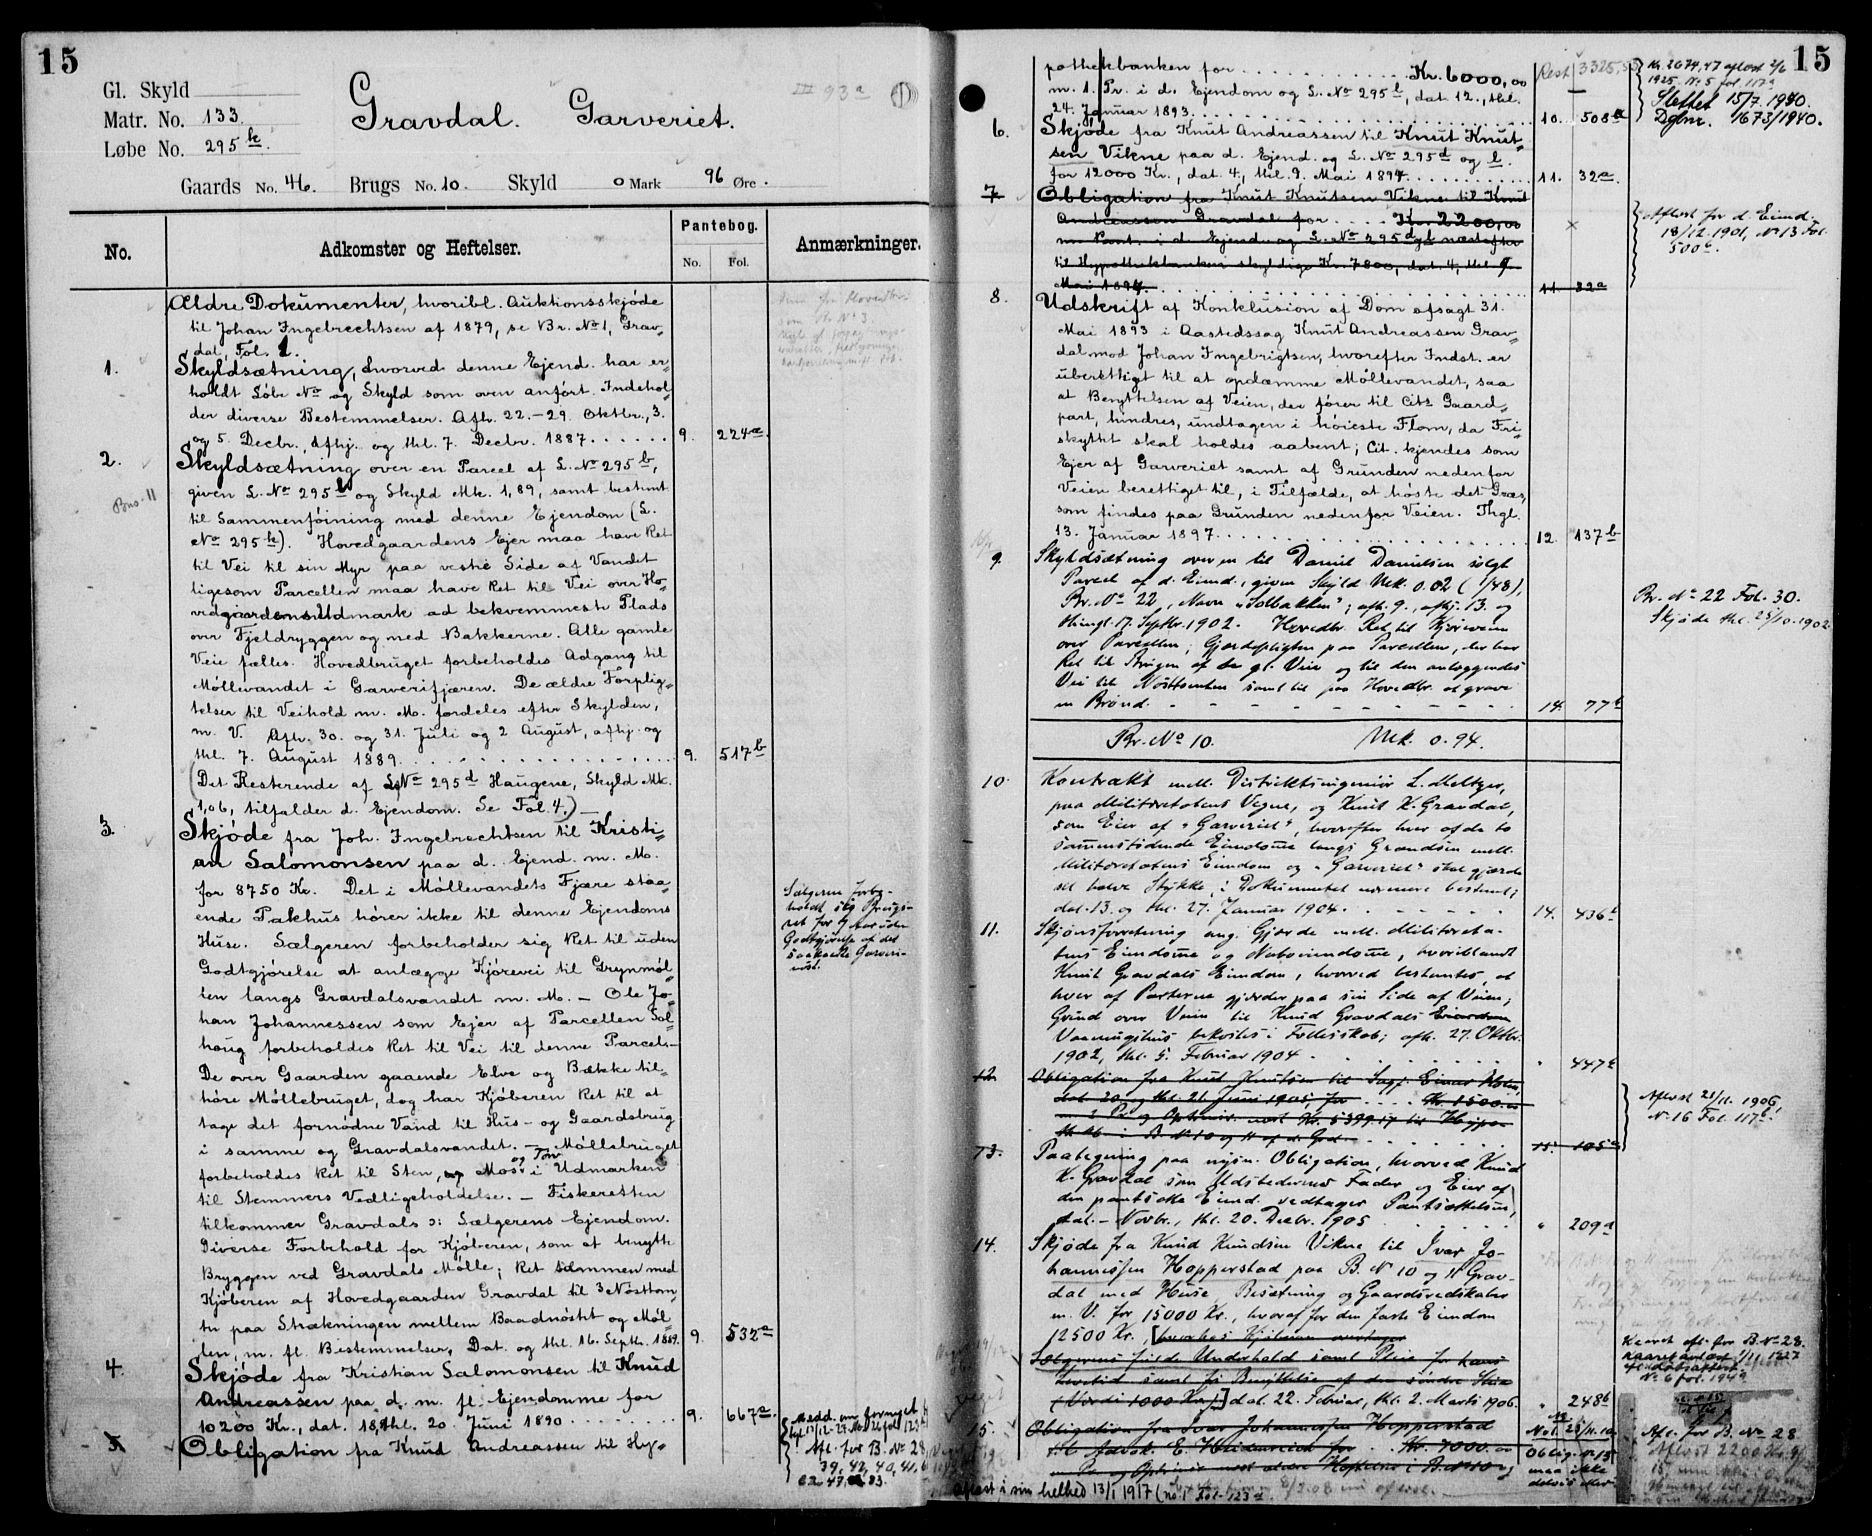 15
Gl. Skyld
Matr. No. 133.
Løbe No. 295 k.
Gravdal. Garveriet.
III 93 a
Gaards No. 46. Brugs No. 10. Skyld 0 Mark 96 Øre.
No.
Adkomster og Heftelser.
Pantebog.
No. Fol.
Anmærkninger.
Ældre Dokumenter, hvoribl. Auktionsskjøde
til Johan Ingebrechtsen af 1879, se Br. No 1, Grav-
dal, Fol. 1.
1. Skyldsætning, hvorved denne Ejend. har er-
holdt Løbe No og Skyld som oven anført. Indehol-
der diverse Bestemmelser. Afh. 22.-29. Oktbr., 3.
og 5. Decbr., Afhj. og thl. 7. Decbr. 1887 . . . . . . 9. 224a.
2. Skyldsætning over en Parcel af L. No 295 b,
Brus. 11
given L. No 295 l og Skyld Mk. 1,89, samt bestemt
til Sammenføining med denne Ejendom (L.
No 295 k). Hovedgaardens Ejer maa have Ret
til Vei til sin Myr paa vestre Side af Vandet
ligesom Parcellen maa have Ret til Vei over Ho-
vedgaardens Udmark ad bekvemmeste Plads
over Fjeldryggen og ned Bakkerne. Alle gamle
Veie fælles. Hovedbruget forbeholdes Adgang til
Møllevandet i Garverifjæren. De ældre Forplig-
telser til Veihold m. M. fordeles efter Skylden,
m. V. Afh. 30. og 31. Juli og 2 August, afhj. og
thl. 7. August 1889. . . . . . . . . . . 9. 517b
(Det Resterende af L. No 295 d Haugene, Skyld Mk.
1,06, tilfalder d. Ejendom. Se Fol. 4.)
3. Skjøde fra Joh. Ingebrechtsen til Kristi-
an Salomonsen paa d. Ejend. m. M.
for 8750 Kr. Det i Møllevandets Fjære staa-
ende Pakhus hører ikke til denne Ejendoms
Huse. Sælgeren forbeholder sig Ret til uden
Godtgjørelse at anlægge Kjørevei til Grynmøl-
len langs Gravdalsvandet m. M. – Ole Jo-
han Johannessen som Ejer af Parcellen Sol-
haug forbeholdes Ret til Vei til denne Parcel. –
De over Gaarden gaaende Elve og Bække til-
høre Møllebruget, dog har Kjøberen Ret til at
tage det fornødne Vand til Hus- og Gaardsbrug
i samme og Gravdalsvandet. – Møllebruget
forbeholdes Ret til Sten, Mos og Torv i Udmarken
til Stemmers Vedligeholdelse. – Fiskeretten
tilkommer Gravdals ɔ: Sælgerens Ejendom.
Diverse Forbehold for Kjøberen, som at benytte
Bryggen ved Gravdals Mølle; Ret sammen med
Kjøberen af Hovedgaarden Gravdal til 3 Nøsttom-
ter paa Strækningen mellem Baadnøstet og Møl-
len, m. fl. Bestemmelser, Dat. og thl. 16. Septb. 1889. 9. 532a
Sælgeren forbe-
holdt sig Brugs-
ret for 9 Aar uden
Godtgjørelse af det
saakaldte Garveri-
nøst.
4. Skjøde fra Kristian Salomonsen til Knud
Andreassen paa d. m. fl. Ejendomme for
10200 Kr., dat. 18, thl. 20. Juni 1890 . . . . . . . 9. 667a.
5. Obligation fra Knud Andreassen til Hy-
Medd. om fornyet
Afl. for B. No 28,
39, 42, 40, 41,
62, 47, 83.
15
pothekbanken for . . . . . . . . . . Kr. 6000,00
m. 1. Pr. i d. Ejendom og L. No 295 l, dat. 12., thl.
24. Januar 1893. . . . . . . . . . . . 10. 508a
Rest 3325,53
Kr. 2674,47 afløst 2/6
1925. No 5 fol. 117a
Slettet 15/7. 1940.
Dgbnr. 1673/1940.
6. Skjøde fra Knut Andreassen til Knut Knut-
sen Vikne paa d. Ejend. og L. No 295 d og l.
for 12000 Kr., dat. 4., thl. 9. Mai 1894. . . . . . . 11. 32a.
7 Obligation fra Knut Knutsen Vikne til Knud
Andreassen Gravdal for . . . . . Kr. 2200,00
m. Pant. i d. Ejend. og L. No 295 d og l næstefter
til Hypothekbanken skyldige Kr. 7800, dat. 4, thl. 9.
Mai 1894. . . . . . . . . . . . 11. 32a
Afløst for d. Eiend.
18/12. 1901, No 13 Fol.
500b.
8. Udskrift af Konklusion af Dom afsagt 31.
Mai 1893 i Aastedssag Knut Andreassen Grav-
dal mod Johan Ingebrigtsen, hvorefter Indst. er
uberettiget til at opdæmme Møllevandet, saa
at Benyttelsen af Veien, der fører til Cits Gaard-
part, hindres, undtagen i høieste Flom, da Fri-
skyttet skal holdes aabent; Cit. kjendes som
Ejer af Garveriet samt af Grunden nedenfor
Veien berettiget til, i Tilfælde, at høste det Græs,
som findes paa Grunden nedenfor Veien. Thgl.
13. Januar 1897. . . . . . . . . . . 12. 137b
9. Skyldsætning over en til Daniel Danielsen solgt
Parcel af d. Eiend., given Skyld Mk. 0.02 (1/48),
Br. No 22, Navn "Solbakken"; afh. 9., afhj. 13. og
thingl. 17. Septbr. 1902. Hovedbr. Ret til Kjørevein
over Parcellen; Gjerdepligten paa Parcellen, der har
Ret til Brugen af de gl. Veie og til den anlæggendes
Vei til Nøsttomten samt til paa Hovedbr. at grave
en Brønd. - - - - - - - - - 14. 77b
Br. No 22 Fol. 30.
Skjøde thl. 25/10. 1902
Br. No 10. Mk. 0.94.
10. Kontrakt mell. Distriktsingeniør L. Meltzer,
paa Militæretatens Vegne, og Knut K. Gravdal,
som Eier af "Garveriet", hvorefter hver af de to
sammenstødende Eiendomme langs Grændsen mell.
Militæretatens Eiendom og "Garveriet" skal gjærde
sit halve Stykke, i Dokumentet nærmere bestemt;
dat. 13. og thl. 27. Januar 1904. - - - - - - 14. 436b
11. Skjønsforretning ang. Gjærde mell. Militæreta-
tens Eiendomme og Naboeiendomme, hvoriblandt
Knut Gravdals Eiendom, hvorved bestemtes, at
hver af Parterne gjærder paa sin Side af Veien;
Grind over Veien til Knud Gravdals Eiendom
Vaaningshus bekostes i Fællesskab; afh. 27. Oktbr.
1902, thl. 5. Februar 1904 . . . . . . . " 447a
12. Obligation fra Knut Knutsen til Sagf. Einar Holm,
dat. 20 og thl. 21. Juni 1905, for . . . . Kr. 1500.00
m. 2 Pr. og Oprinds. næst Kr. 5399.17 til Hypo-
thkb. i B. No 10 og 11 af d. Grd. . . . . . . . 15. 105a
Aflæst 21/11. 1906,
No 16 Fol. 117b.
13. Paategning paa nysn. Obligation, hvorved Knud
K. Gravdal som Udstederens Fader og Eier af
den pantsatte Eiend. vedtager Pantsættelsen,
dat. – Novbr., thl. 20. Decbr. 1905 . . . . . " 209a
14. Skjøde fra Knud Knudsen Vikne til Ivar Jo-
hannessen Hopperstad paa B. No 10 og 11 Grav-
dal med Huse, Besætning og Gaardsredskaber
m. V. for 15000 Kr., hvoraf for den faste Eiendom
12500 Kr., [hvorhos Kjøberen overtager
Sælgerens fulde Underhold samt Pleie for hans
Levetid samt fri Benyttelse af den søndre Stue
(Værdi 1000 Kr.)] dat. 22. Februar, thl. 2. Marts 1906. " 248b
15. Obligation fra Ivar Johannessen Hopperstad
til . . Kr. 7000.00
m. Pr. og Oprinds. næst ældre Heftelser i B. No 10 og
Aflæst i sin helhed 13/1 1917 (no 1 fol. 123a
Kaaret afl. for B. No 28.
No 6 fol. 194a
Oblig. No 15
maa ikke
Afl. for B. No 28.
Aflæst 2200 Kr.